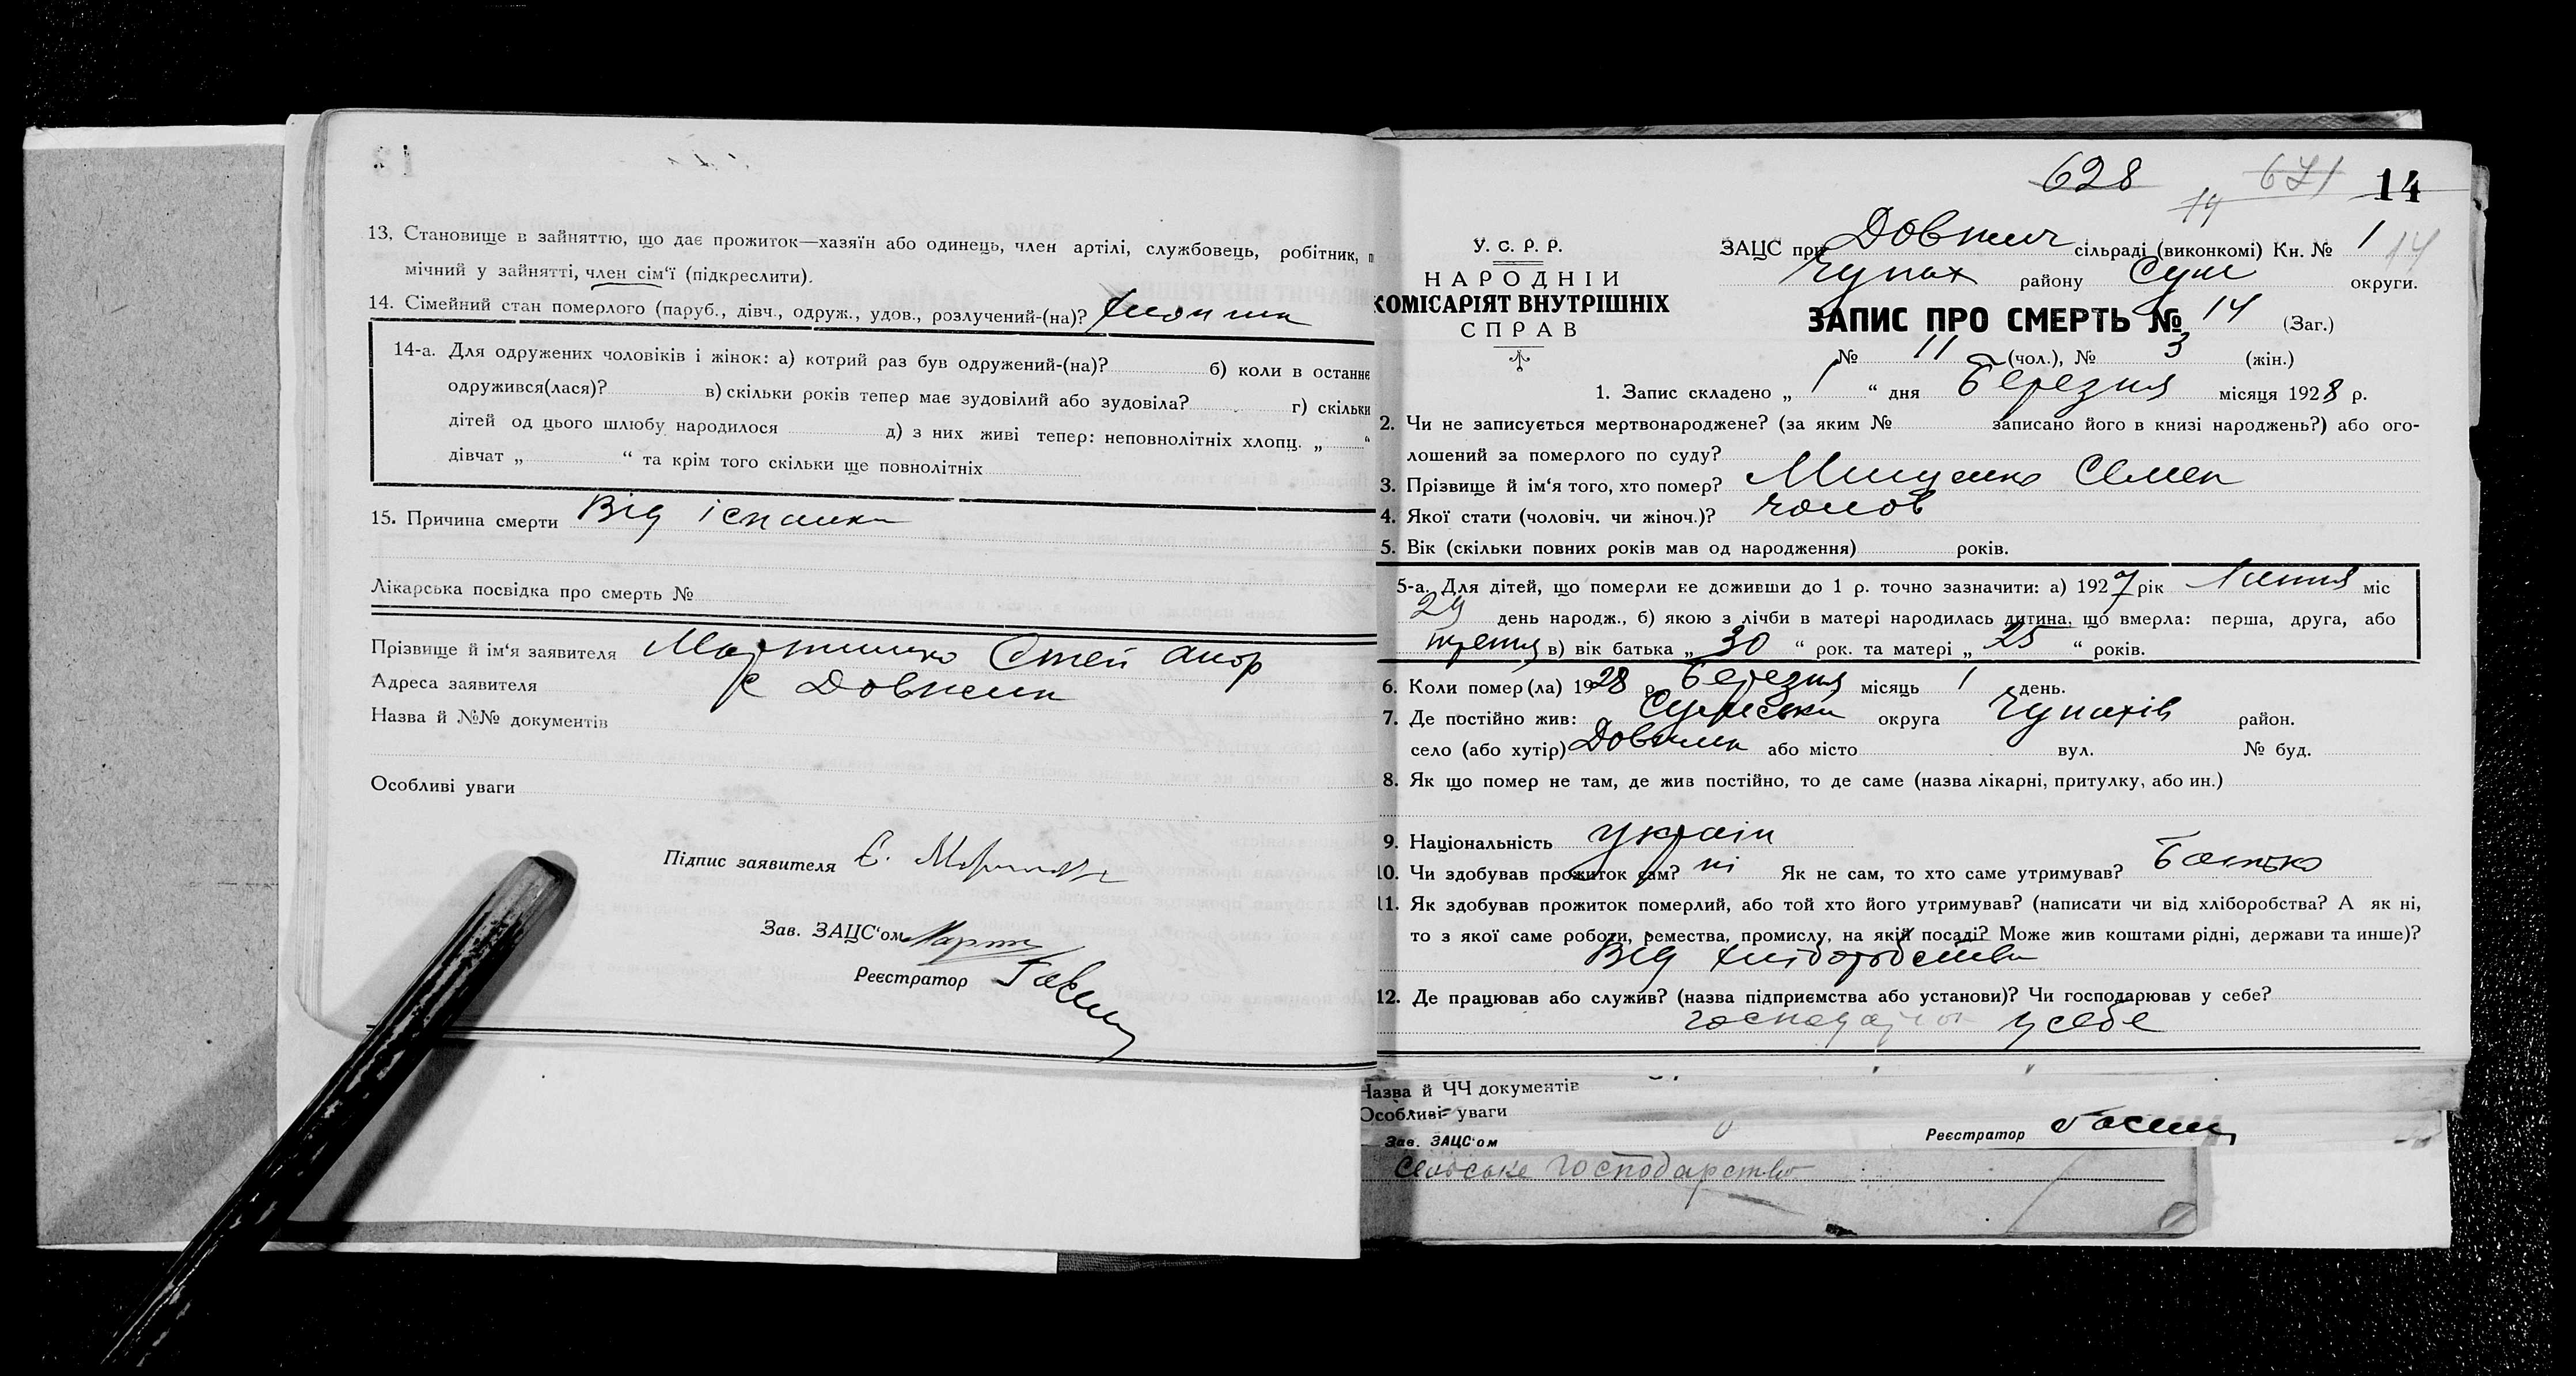 13. Становище в зайняттю, що дає прожиток—хазяїн або одинець, член артілі, службовець, робітник,
мічний у зайнятті, член сім'ї (підкреслити).
14. Сімейний стан померлого (паруб., дівч., одруж., удов., розлучений-(на)?
14-а. Для одружених чоловіків і жінок: а) котрий раз був одружений-(на)? б) коли в останнє
одружився(лася)? в) скільки років тепер має зудовілий або зудовіла? г) скільки
дітей од цього шлюбу народилося д) з них живі тепер: неповнолітніх хлопц. „ “
дівчат „ “ та крім того скільки ще повнолітніх
15. Причина смерти Від іспанки
Лікарська посвідка про смерть №
Прізвище й ім'я заявителя
Адреса заявителя с Довжик
Назва й №№ документів
Особливі уваги
Підпис заявителя Є.
Зав. ЗАЦС'ом
Реєстратор
628 671 14
14
У. С. Р. Р.
НАРОДНІЙ
КОМІСАРІЯТ ВНУТРІШНІХ
СПРАВ
ЗАЦС при Довжич сільраді (виконкомі) Кн. № 1 14
Чупах району Сум округи.
ЗАПИС ПРО СМЕРТЬ № 14 (Заг.)
№ 11 (чол.), № 3 (жін.)
1. Запис складено „ 1 “ дня Березня місяця 1928 р.
2. Чи не записується мертвонароджене? (за яким № записано його в книзі народжень?) або ого-
лошений за померлого по суду?
3. Прізвище й ім'я того, хто помер? Мищенко Семен
4. Якої стати (чоловіч. чи жіноч.)? чолов
5. Вік (скільки повних років мав од народження) років.
5-а. Для дітей, що померли не доживши до 1 р. точно зазначити: а) 1927 рік Липня міс
29 день народж., б) якою з лічби в матері народилась дитина, що вмерла: перша, друга, або
третя в) вік батька „ 30 “ рок. та матері „ 25 “ років.
6. Коли помер (ла) 1928 р. Березня місяць 1 день.
7. Де постійно жив: Сумська округа Чупахів район.
село (або хутір) Довжик або місто вул. № буд.
8. Як що помер не там, де жив постійно, то де саме (назва лікарні, притулку, або ин.)
9. Національність україн
10. Чи здобував прожиток сам? ні Як не сам, то хто саме утримував? Батько
11. Як здобував прожиток померлий, або той хто його утримував? (написати чи від хліборобства? А як ні,
то з якої саме роботи, ремества, промислу, на якій посаді? Може жив коштами рідні, держави та инше)?
Від хліборобства
12. Де працював або служив? (назва підприємства або установи)? Чи господарював у себе?
у себе
Назва й ЧЧ документів
Особливі уваги
Зав. ЗАЦС'ом Реєстратор
сельське господарство